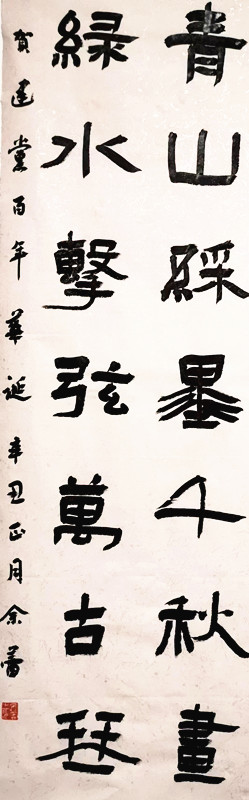 青山綵墨千秋畫
綠水擊弦萬古琴
賀建黨百年華誕辛丑正月余